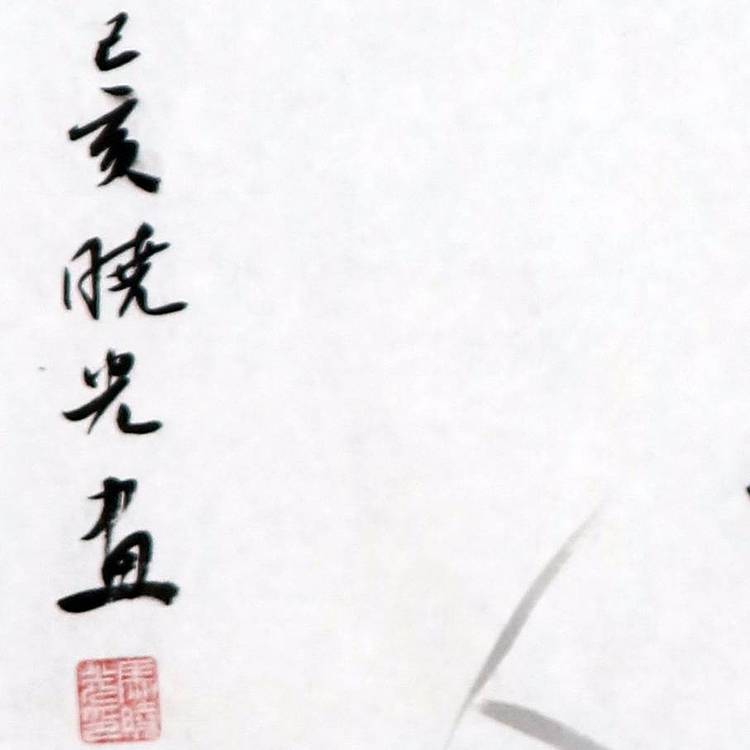 己亥曉光画